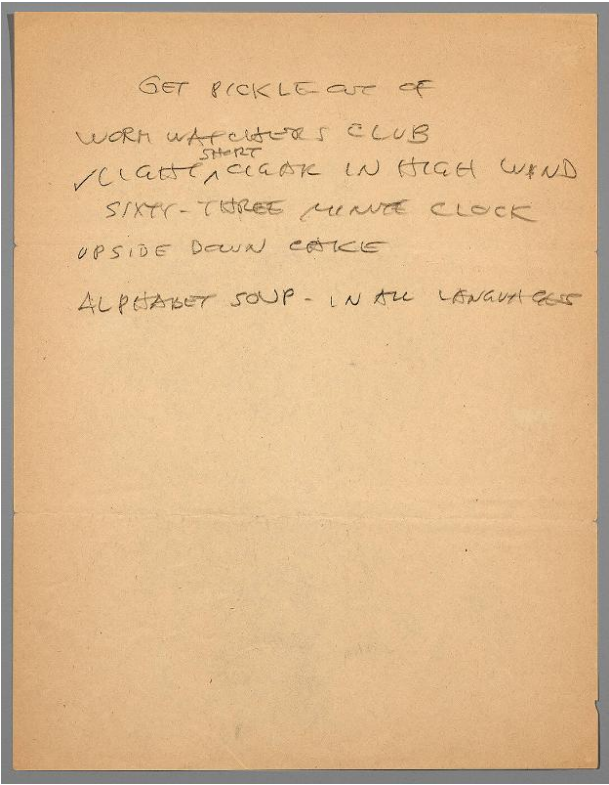 GET PICKLE OUT OF
WORM WATCHERS CLUB
SHORT
✓LIGHT ‸ CIGAR IN HIGH WIND
SIXTY-THREE MINUTE CLOCK
UPSIDE DOWN CAKE
ALPHABET SOUP - IN ALL LANGUAGES